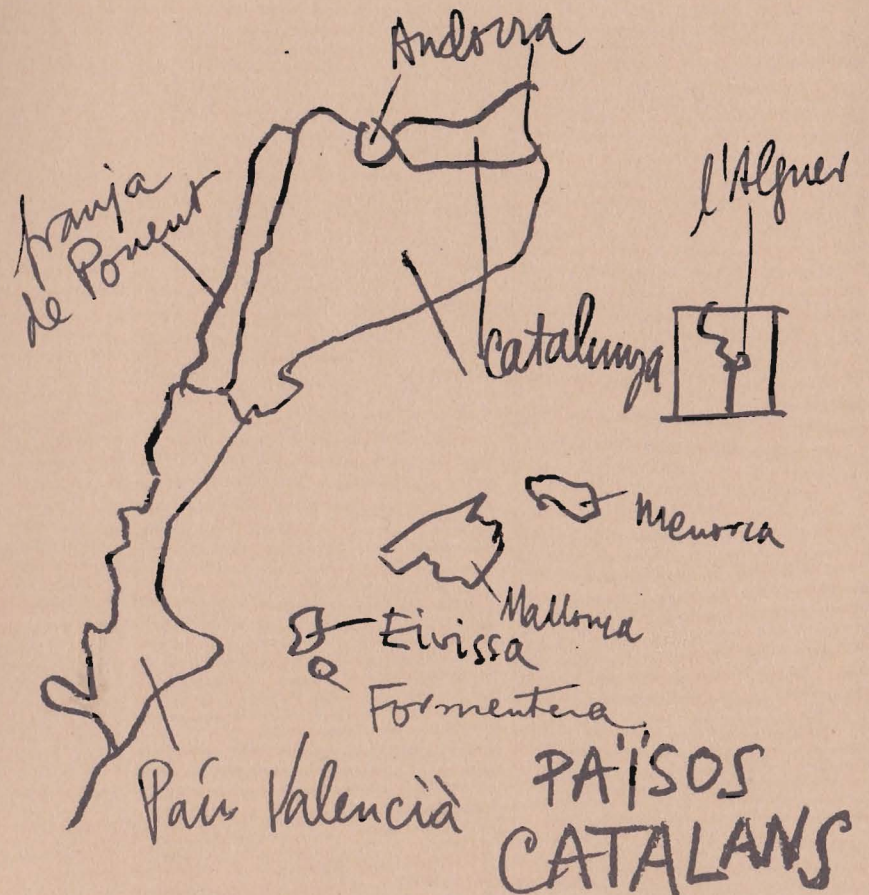 Andorra
l'Alguer
franja
de Ponent
Catalunya
Menorca
Mallorca
Eivissa
Formentera
País Valencià
PAÏSOS
CATALANS